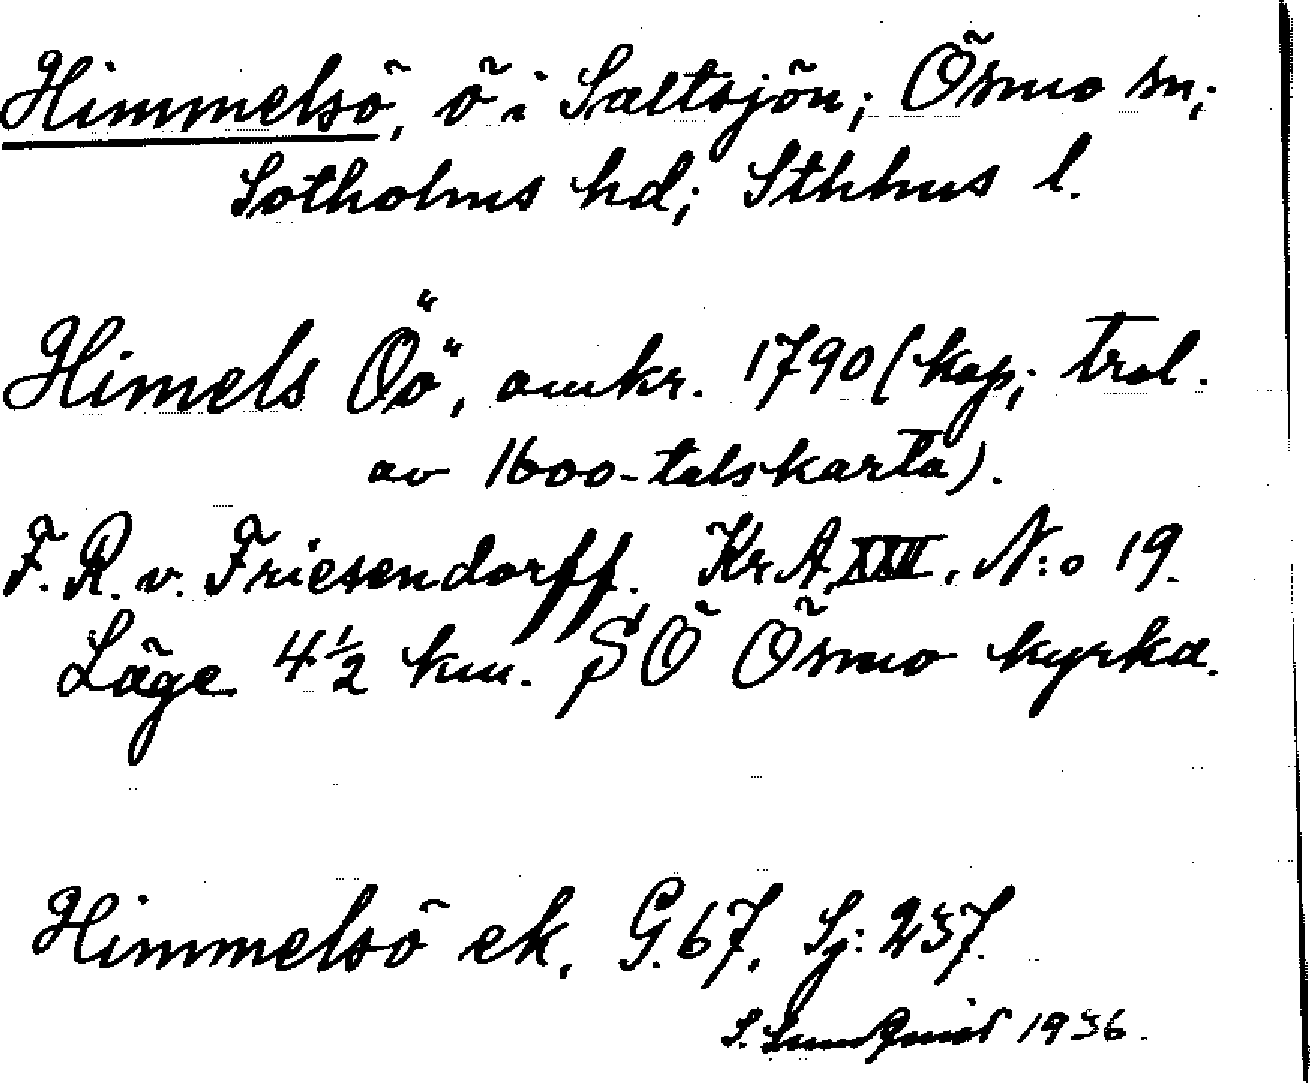 Himmelsö, ö i Saltsjön; Ösmo sn;
Sotholms hd; Sthlms l.
Himels Öö", omkr. 1790 (kop; trol.
av 1600-talskarta).
F. R. v. Friesendorff. Kr A XXVI, N:o 19.
Läge 4½ km. SÖ Ösmo kyrka.
Himmelsö ek. G. 67. Sj: 257.
S. Lundquist 1936.